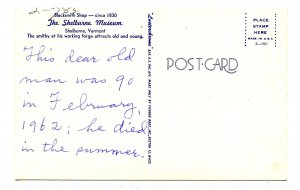 Blacksmith Shop — circa 1830
The Shelburne Museum
Shelburne, Vermont
The smithy at his working forge attracts old and young.
This dear old
man was 90
in February,
1962; he died
in the summer.
POST CARD
PLACE
STAMP
HERE
MADE IN U.S.A.